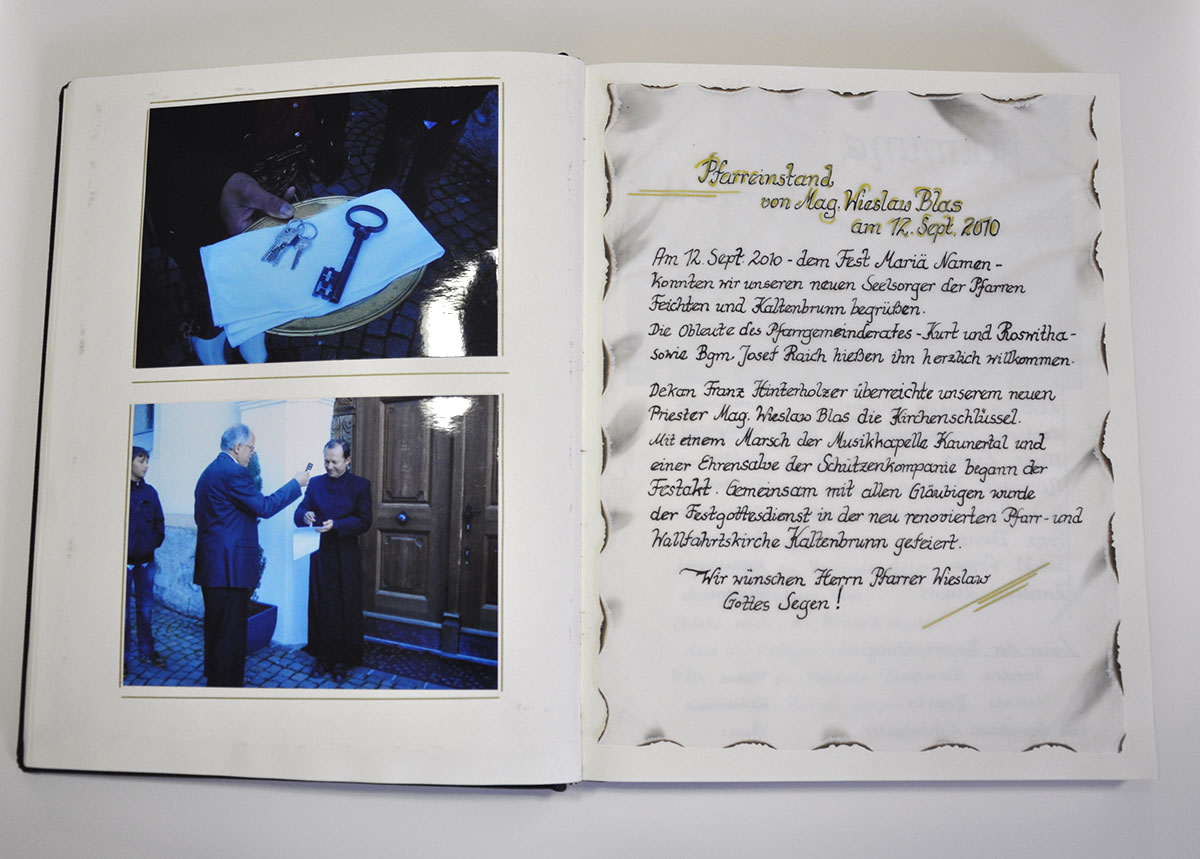 Pfarreinstand
von Mag. Wieslaw Blas
am 12. Sept. 2010
Am 12. Sept. 2010 - dem Fest Mariä Namen -
konnten wir unseren neuen Seelsorger der Pfarren
Feichten und Kaltenbrunn begrüßen.
Die Obleute des Pfarrgemeinderates - Kurt und Roswitha -
sowie Bgm Josef Raich hießen ihn herzlich willkommen.
Dekan Franz Hinterholzer überreichte unserem neuen
Priester Mag. Wieslaw Blas die Kirchenschlüssel.
Mit einem Marsch der Musikkapelle Kaunertal und
einer Ehrensalve der Schützenkompanie begann der
Festakt. Gemeinsam mit allen Gläubigen wurde
der Festgottesdienst in der neu renovierten Pfarr- und
Wallfahrtskirche Kaltenbrunn gefeiert.
Wir wünschen Herrn Pfarrer Wieslaw
Gottes Segen!